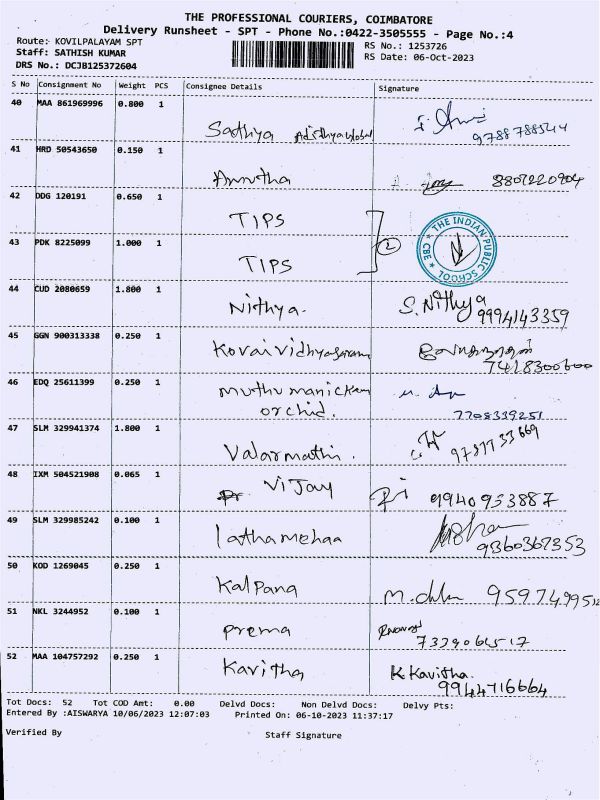 THE PROFESSIONAL COURIERS, COIMBATORE
Delivery Runsheet - SPT - Phone No.:0422-3505555 - Page No.:4
Route: KOVILPALAYAM SPT
RS No.: 1253726
Staff: SATHISH KUMAR
RS Date: 06-Oct-2023
DRS No.: DCJB125372604
S No Consignment No Weight PCS Consignee Details Signature
40 MAA 861969996 0.800 1
Sadhya
41 HRD 50543650 0.150 1
Amrutha 8807220904
42 DDG 120191 0.650 1
TIPS
THE INDIAN PUBLIC SCHOOL CBE
43 PDK 8225099 1.000 1
TIPS
2
44 CUD 2080659 1.800 1
Nithya. S. Nithya
9994143359
45 GGN 900313338 0.250 1
7418300600
46 EDQ 25611399 0.250 1
muthu manickam
orchid. 7708339251
47 SLM 329941374 1.800 1
Valarmathi. 9787733669
48 IXM 504521908 0.065 1
Vijay 9940953887
49 SLM 329985242 0.100 1
lathamehaa 9360367353
50 KOD 1269045 0.250 1
Kalpana
51 NKL 3244952 0.100 1
Prema
52 MAA 104757292 0.250 1
Kavitha K. Kavitha.
9944716664
Tot Docs: 52 Tot COD Amt: 0.00 Delvd Docs: Non Delvd Docs: Delvy Pts:
Entered By :AISWARYA 10/06/2023 12:07:03 Printed On: 06-10-2023 11:37:17
Verified By Staff Signature